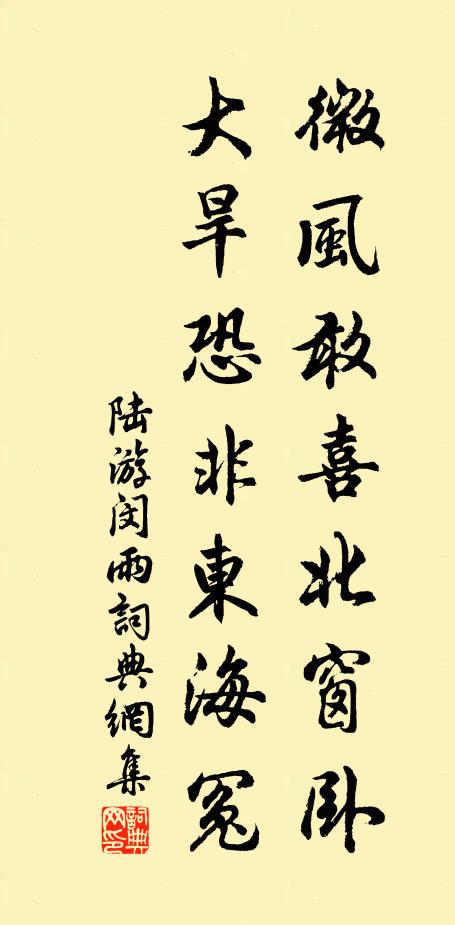 微風敢喜北窗卧
大旱恐非東海冤
陸游閔雨詞典網集
詞典網印